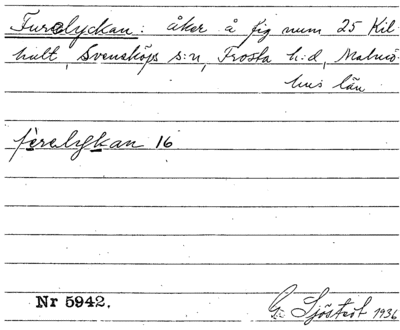 Furelyckan: åker å fig num 25 Kil-
hult, Svensköps s:n, Frosta h:d, Malmö-
hus län
fèrelykan 16
Nr 5942.
G. Sjöstedt 1936